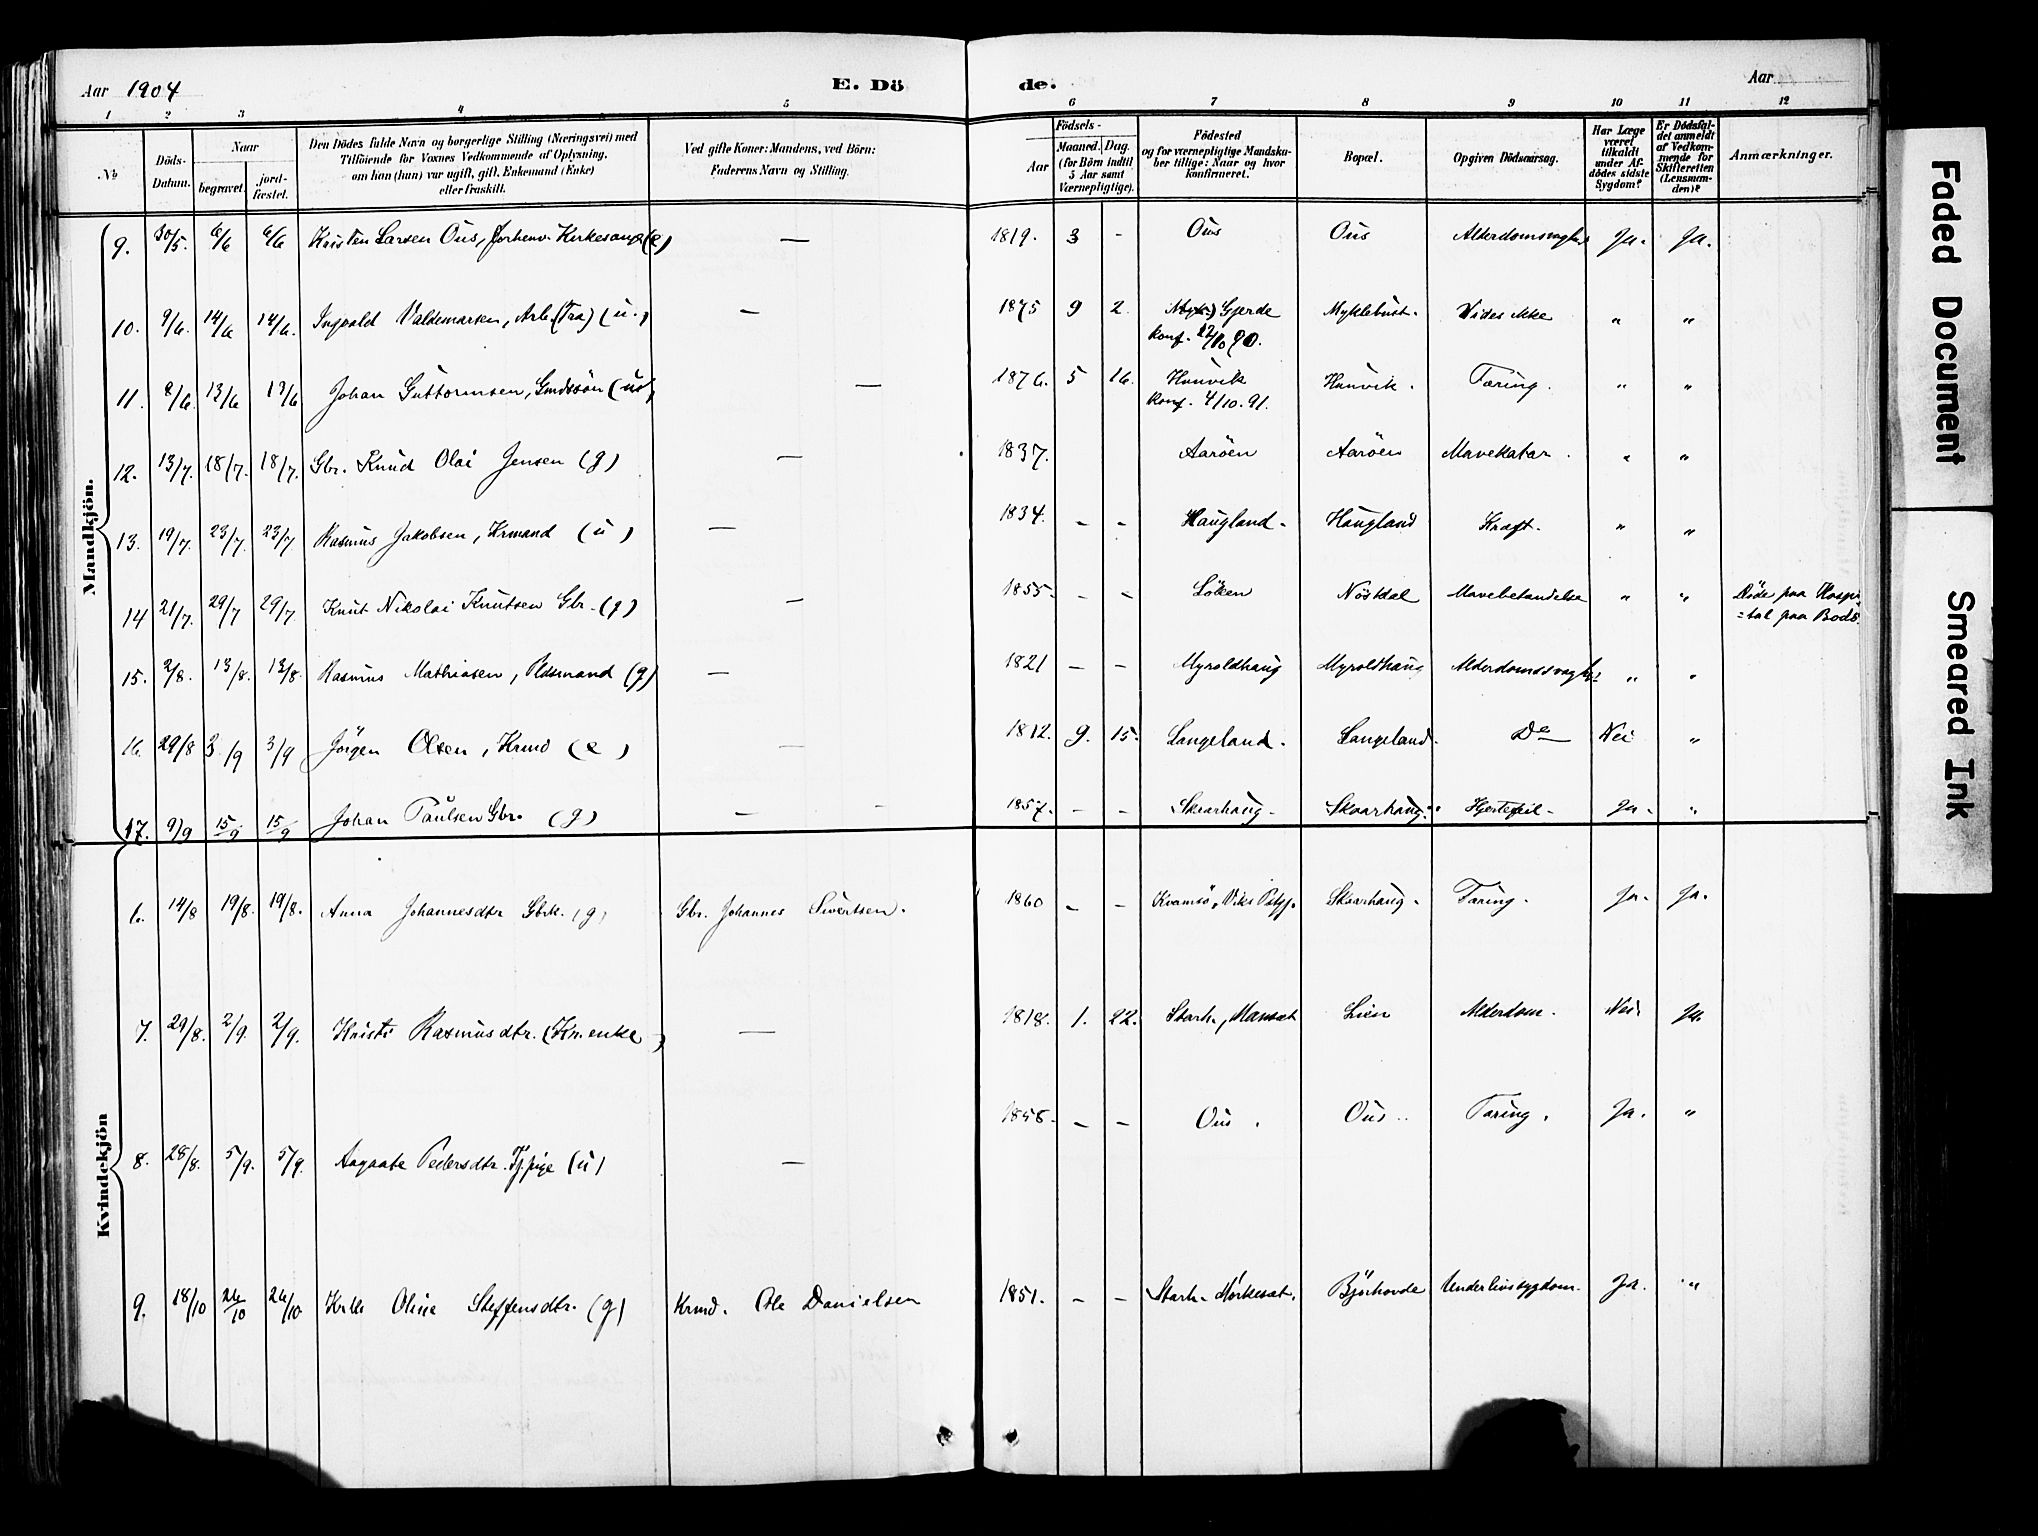 Aar 1904
E. Dö
de.
Aar
1 2 3 4 5 6 7 8 9 10 11 12
No
Döds-
Datum.
Naar
begravet.
jord-
fæstet.
Den Dödes fulde Navn og borgerlige Stilling (Næringsvei) med
Tilföiende for Voxnes Vedkommende af Oplysning,
om han (hun) var ugift, gift, Enkemand (Enke)
eller fraskilt.
Ved gifte Koner: Mandens, ved Börn:
Faderens Navn og Stilling.
Födsels-
Aar
Maaned. Dag.
(for Börn indtil
5 Aar samt
Værnepligtige).
Födested
og for værnepligtige Mandska-
ber tillige: Naar og hvor
konfirmeret.
Bopæl.
Opgiven Dödsaarsag.
Har Læge
været
tilkaldt
under Af-
dödes sidste
Sygdom?
Er Dödsfal-
det anmeldt
af Vedkom-
mende for
Skifteretten
(Lensman-
den)?
Anmærkninger.
Mandkjön.
9. 30/5. 6/6 6/6 Kristen Larsen Ous, forhenv. Kirkesanger (e) — 1819. 3 - Ous Ous Alderdomssvaghed Ja. Ja.
10. 9/6. 14/6 14/6. Ingvald Valdemarsen, Arb. (Fra) (u.) — 1875 9 2. Gjerde Myklebust. Vides ikke " "
konf. 12/10 90.
11. 8/6. 13/6 13/6 Johan Guttormsen, Gmdssön (u) — 1876. 5 16. Honvik Honvik. Tæring. " "
konf. 4/10. 91.
12. 13/7. 18/7. 18/7. Gbr. Knud Olai Jensen (g) — 1837. Aaröen Aaröen Mavekatar. " "
13. 19/7. 23/7. 23/7 Rasmus Jakobsen, Krmand (u) — 1834. - - Haugland. Haugland Kræft. " "
14 21/7. 29/7 29/7. Knut Nikolai Knutsen Gbr. (g) — 1855. - - Löken Nöstdal Mavebetændelse " " Döde paa Hospi-
=tal paa Bodö.
15. 2/8. 13/8. 13/8. Rasmus Mathiasen, Pldsmand (g) — 1821 - - Myroldhaug Myroldhaug Alderdomssvaghed " "
16. 29/8 3/9 3/9 Jörgen Olsen, Krmd (e) — 1812. 9. 15. Langeland. Langeland. Do Nei "
17. 9/9 15/9 15/9 Johan Paulsen Gbr. (g) — 1857. - - Skaarhaug. Skaarhaug. Hjertefeil. Ja. "
Kvindekjön
6. 14/8 19/8. 19/8. Anna Johannesdtr Gbrk. (g) Gbr. Johannes Sivertsen. 1860 - - Kvamsö, Viks Pstgj. Skaarhaug. Tæring. Ja. Ja.
7. 29/8. 2/9. 2/9. Kristi Rasmusdtr. (Kr. enke) — 1818. 1. 22. Starh., Mansæt Lien Alderdom. Nei Ja.
8. 28/8. 5/9. 5/9. Aagaate Pedersdtr. Tj.pige (u) — 1858. - - Ous. Ous. Tæring. Ja. "
9. 18/10 26/10 26/10 Krk. Oline Steffensdtr. (g) Krmd. Ole Danielsen 1851. - - Starh. Mörkesæt. Björhovde Underlivssygdom. Ja. "
Faded Document
Smeared Ink